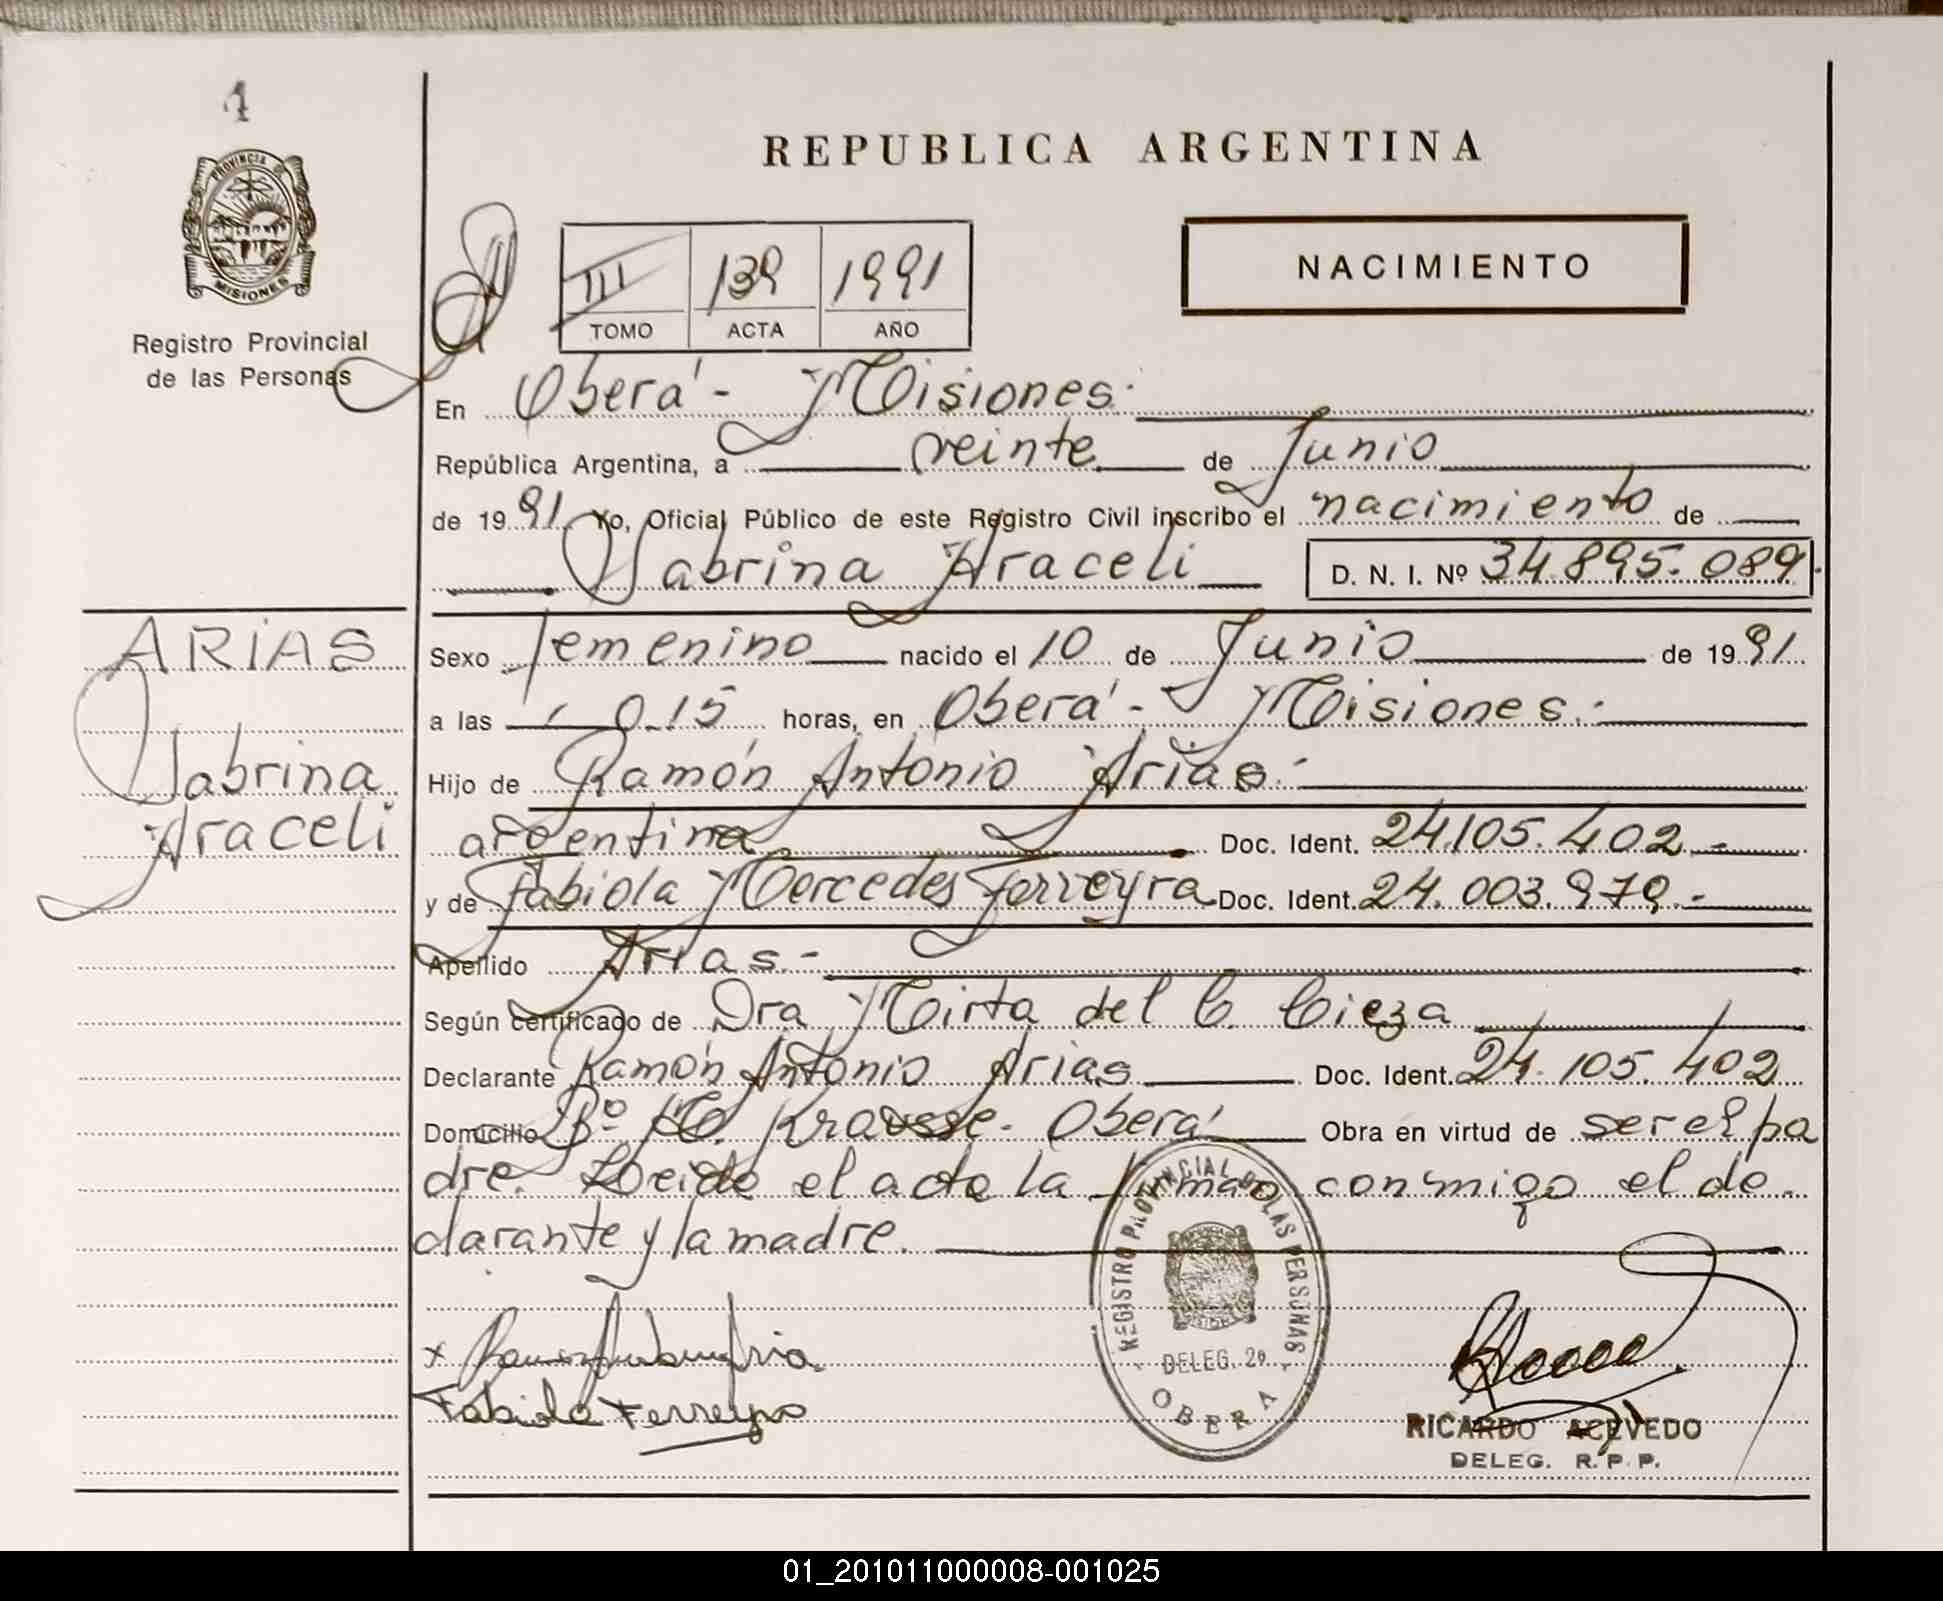 1
PROVINCIA DE
MISIONES
Registro Provincial
de las Personas
REPUBLICA ARGENTINA
III 139 1991
TOMO ACTA AÑO
NACIMIENTO
En Oberá - Misiones
República Argentina, a veinte de Junio
de 1991 Yo, Oficial Público de este Registro Civil inscribo el nacimiento de
Sabrina Araceli D. N. I. Nº 34.895.089
ARIAS
Sabrina
Araceli
Sexo femenino nacido el 10 de Junio de 1991
a las 0.15 horas, en Oberá - Misiones.-
Hijo de Ramón Antonio Arias.-
argentina Doc. Ident. 24.105.402.-
y de Fabiola Mercedes Ferreyra Doc. Ident. 24.003.979.-
Apellido Arias.-
Según certificado de Dra Mirta del C. Cieza
Declarante Ramón Antonio Arias Doc. Ident. 24.105.402
Domicilio Bº Krausse - Oberá Obra en virtud de ser el pa
dre. Leída el acta la firman conmigo el de-
clarante y la madre.
REGISTRO PROVINCIAL DE LAS PERSONAS
DELEG. 2ª
OBERA
x
Fabiola Ferreyra
RICARDO ACEVEDO
DELEG. R. P. P.
01_201011000008-001025